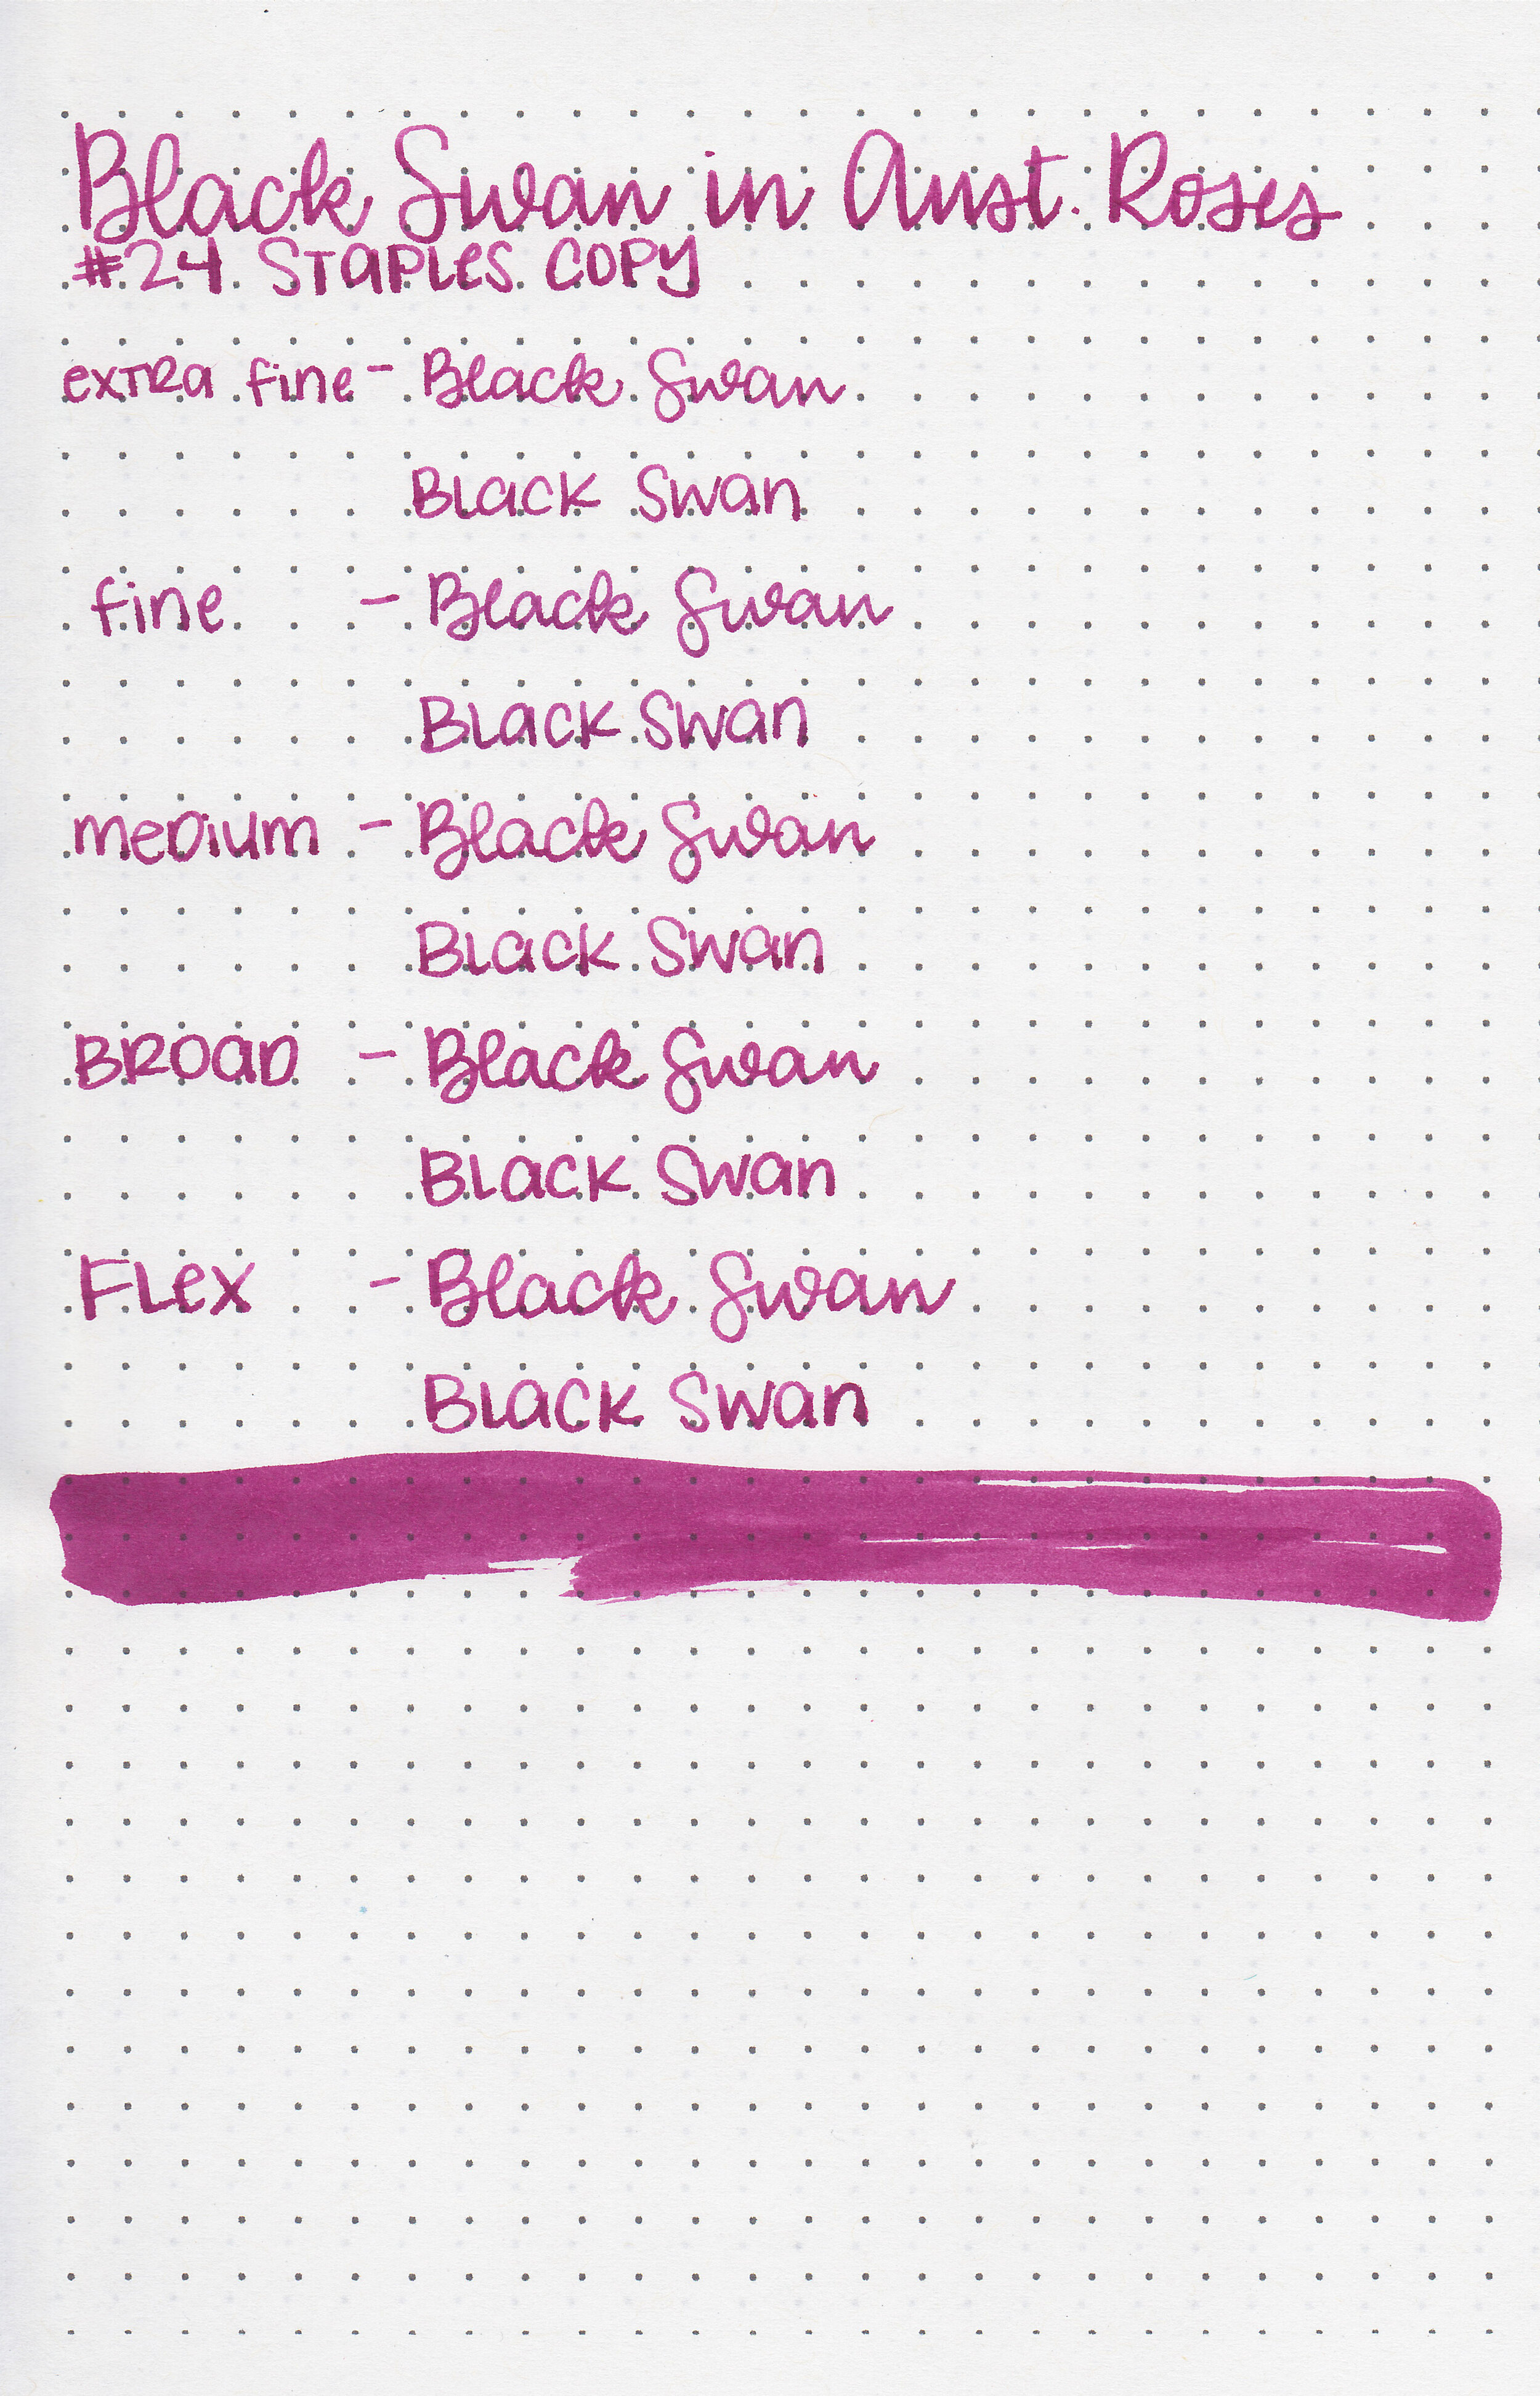 Black Swan in Aust. Roses
#24 Staples Copy
extra fine - Black Swan
Black Swan
fine - Black Swan
Black Swan
medium - Black Swan
Black Swan
Broad - Black Swan
Black Swan
Flex - Black Swan
Black Swan